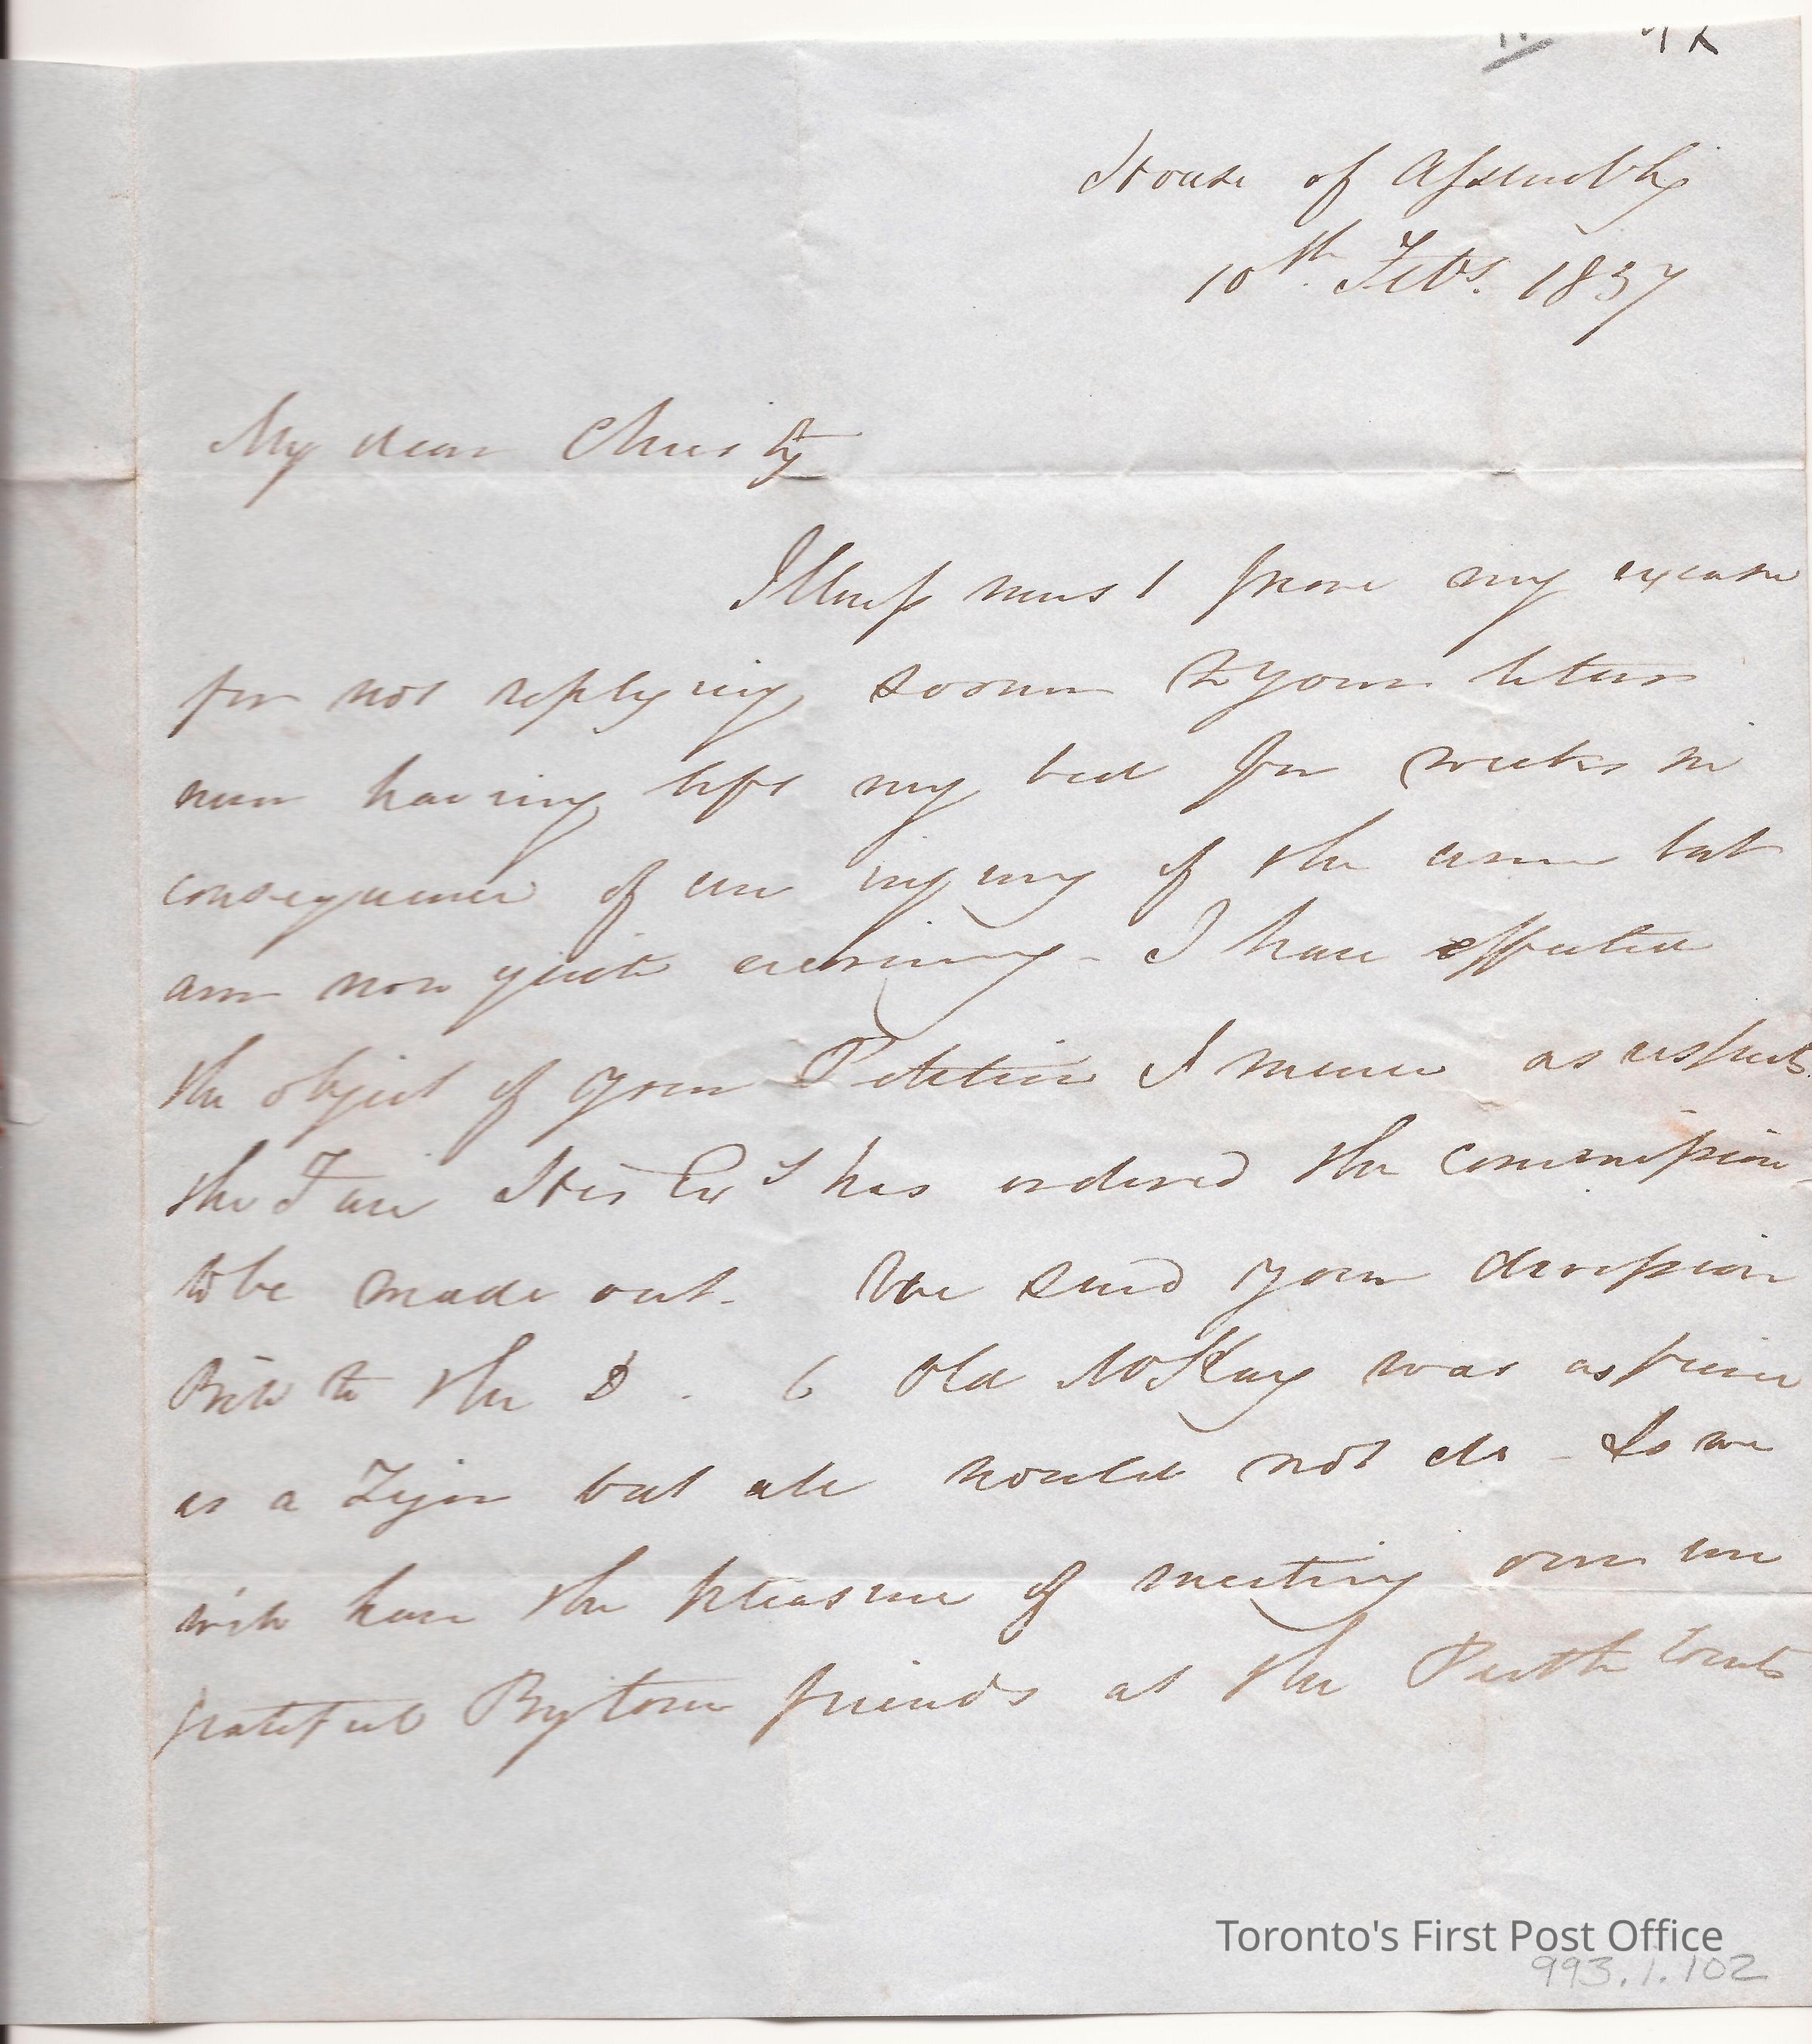 House of Assembly
10th Feby. 1837
My dear Christy
Illness must prove my excuse
for not replying sooner to your letter
never having left my bed for weeks in
consequence of an injury of the arm but
am now quite
I have effected
the object of your Petition I mean as respects
the Fair His Exy has ordered the commission
to be made out. We send your division
Bill to the D. C Old McKay was as fierce
as a Tyger but ale would not do - So we
will have the pleasure of meeting our un
grateful Bytown friends at the Perth Courts
Toronto's First Post Office
993.1.102